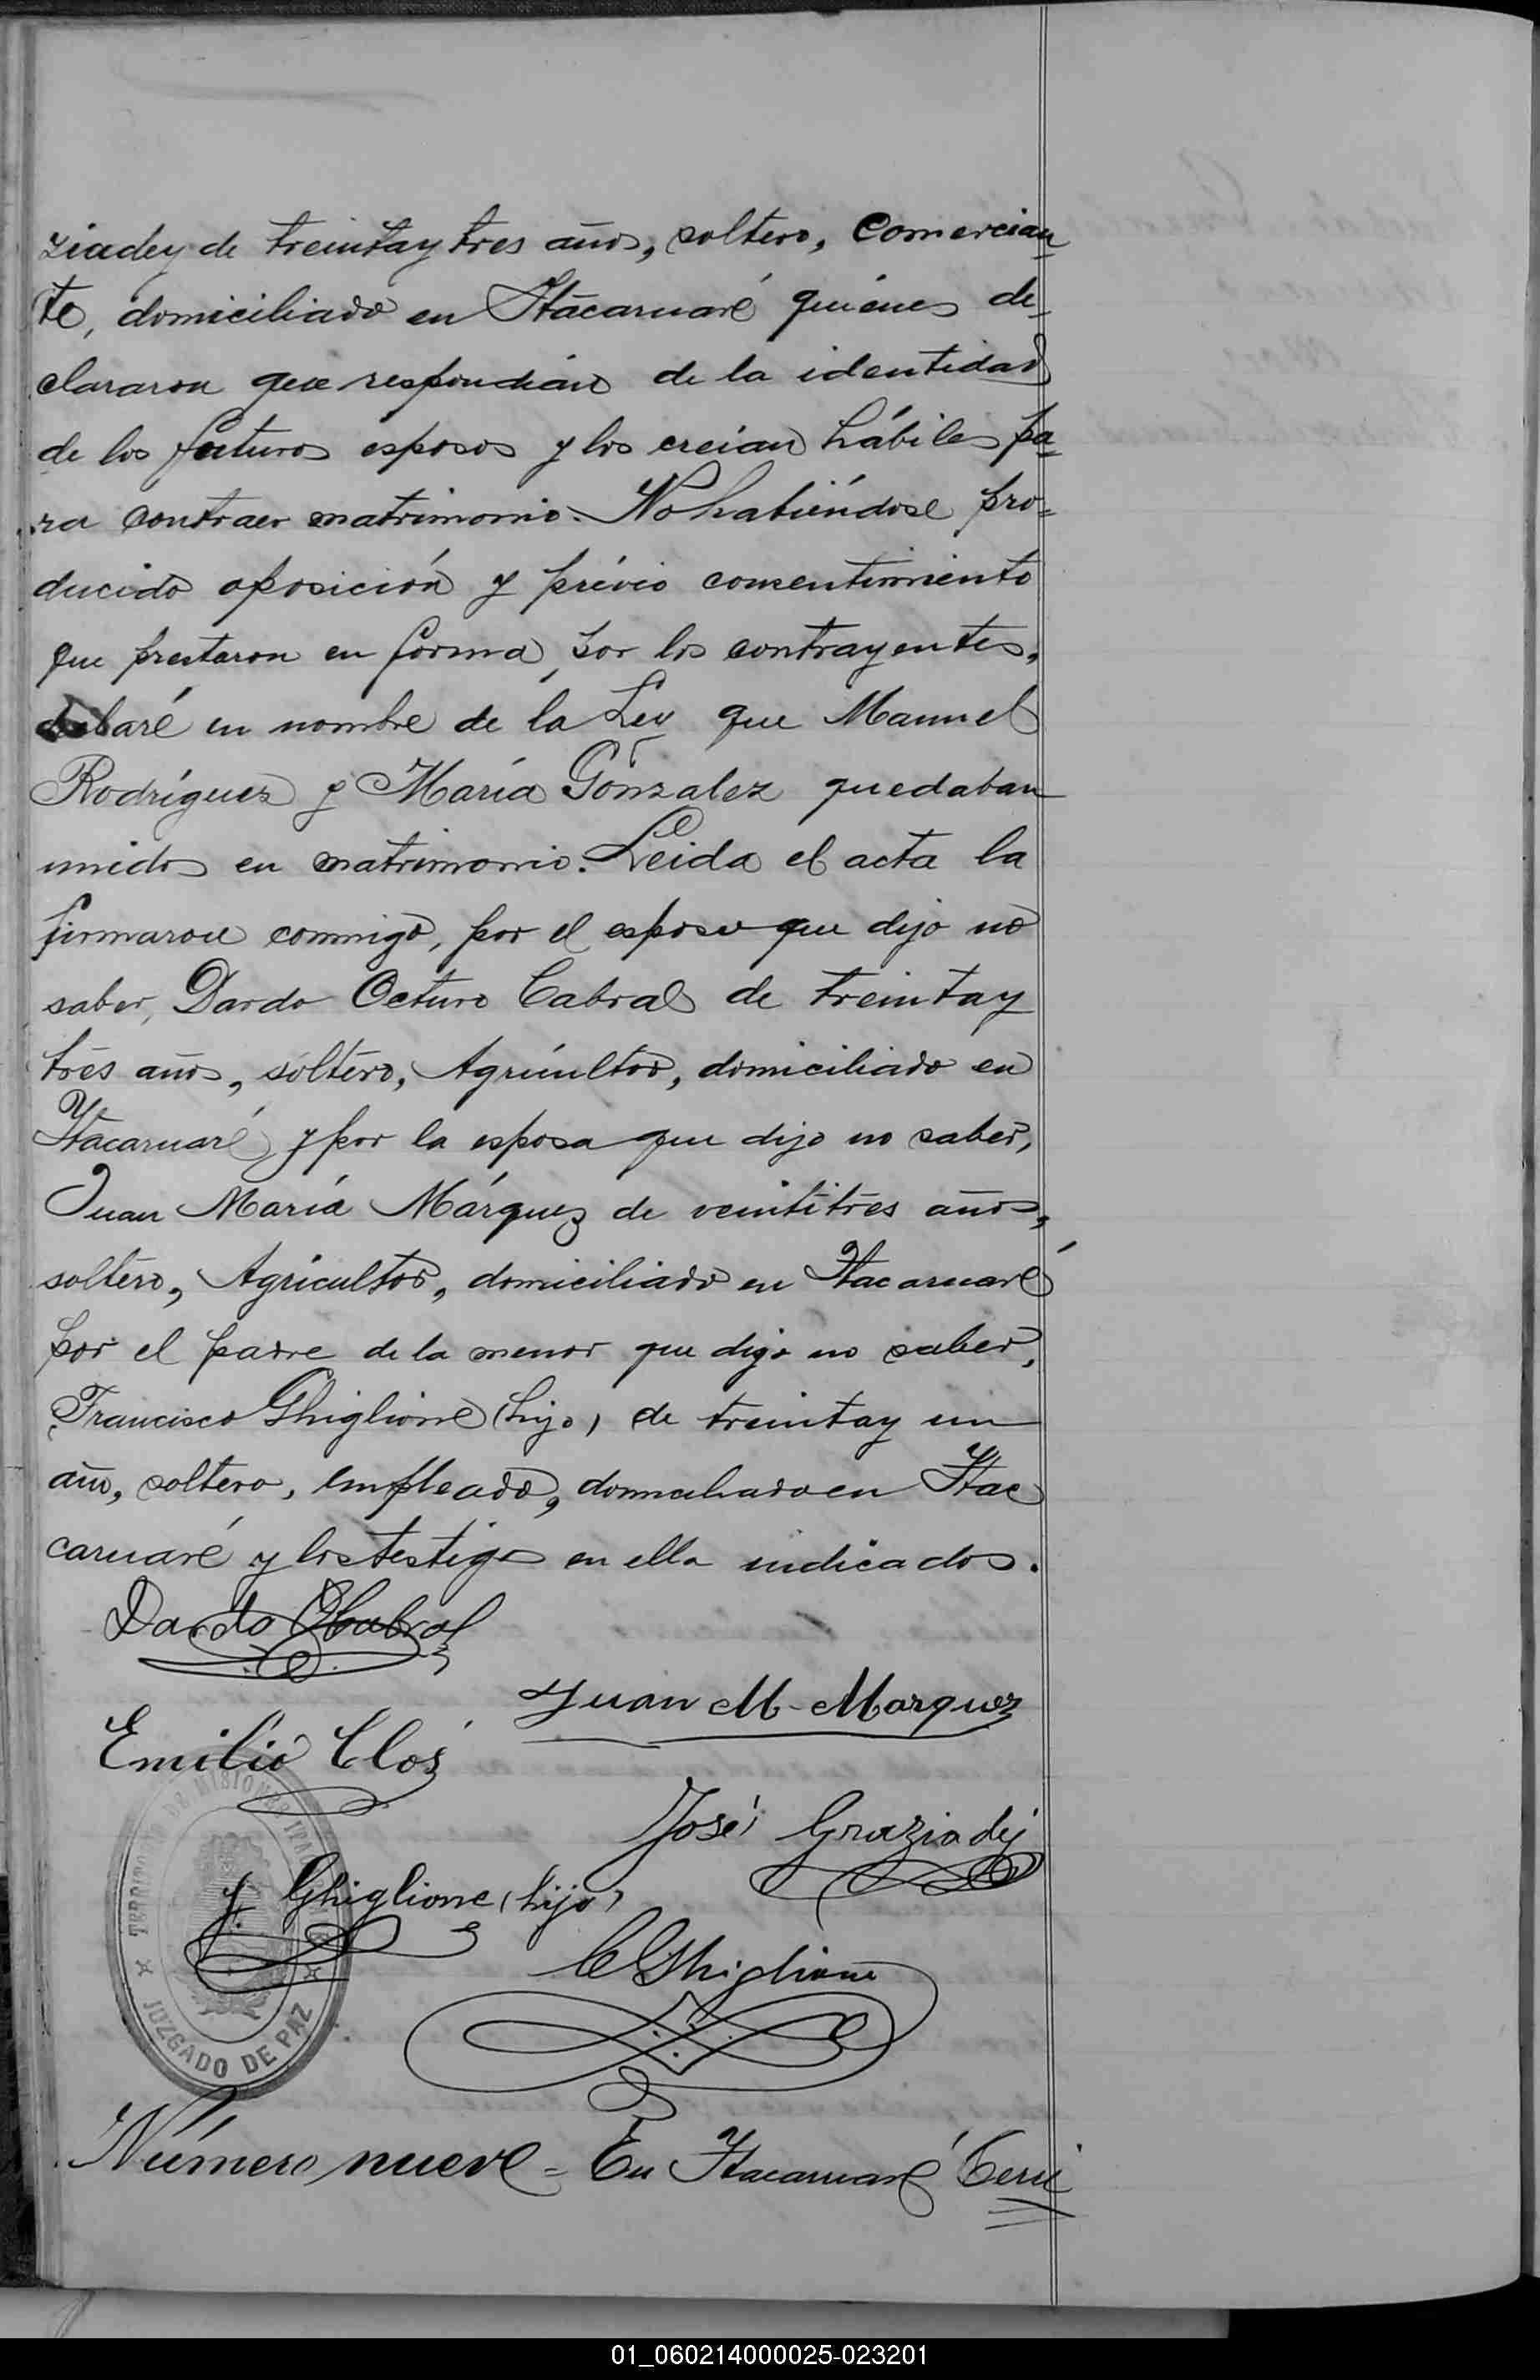 ziadey de treinta y tres años, soltero, Comercian_
te, domiciliado en Itacaruaré quiénes de_
clararon que respondián de la identidad
de los futuros esposos y los creian hábiles pa_
ra contraer matrimonio. No habiéndose pro=
ducido oposición y prévio consentimiento
que prestaron en forma, por los contrayentes,
declaré en nombre de la Ley que Manuel
Rodríguez y María González quedaban
unidos en matrimonio. Leida el acta la
firmaron conmigo, por el esposo que dijo no
saber, Dardo Cabral de treinta y
tres años, soltero, Agricultor, domiciliado en
Itacaruaré, y por la esposa que dijo no saber,
Juan María Márquez de veintitres años,
soltero, Agricultor, domiciliado en Itacaruaré
por el padre de la menor que digo no saber,
Francisco Ghiglione (hijo) de treinta y un
año, soltero, empleado, domiciliado en Itac
caruaré y los testigos en ella indicados.
Dardo O Cabral
Juan M- Marquez
Emilio Clos
José Graziadey
F. Ghiglione (hijo)
C Ghiglione
TERRITORIO DE MISIONES
JUZGADO DE PAZ
Número nueve = En Itacaruaré Cerri
01_060214000025-023201